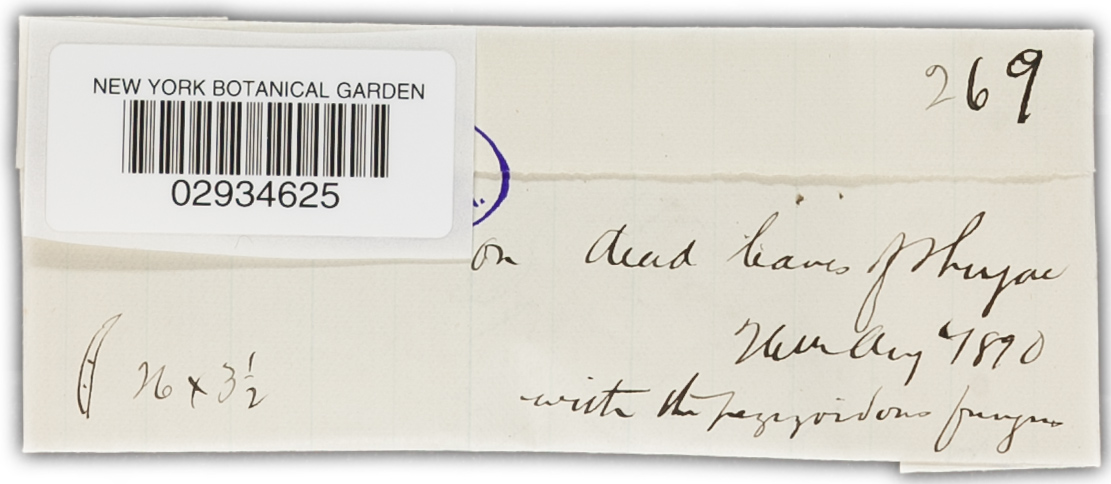 NEW YORK BOTANICAL GARDEN
02934625
269
on dead leaves of Thuyae
Aug 1890
26 x 3 1/2
with the pezizoidous fungus